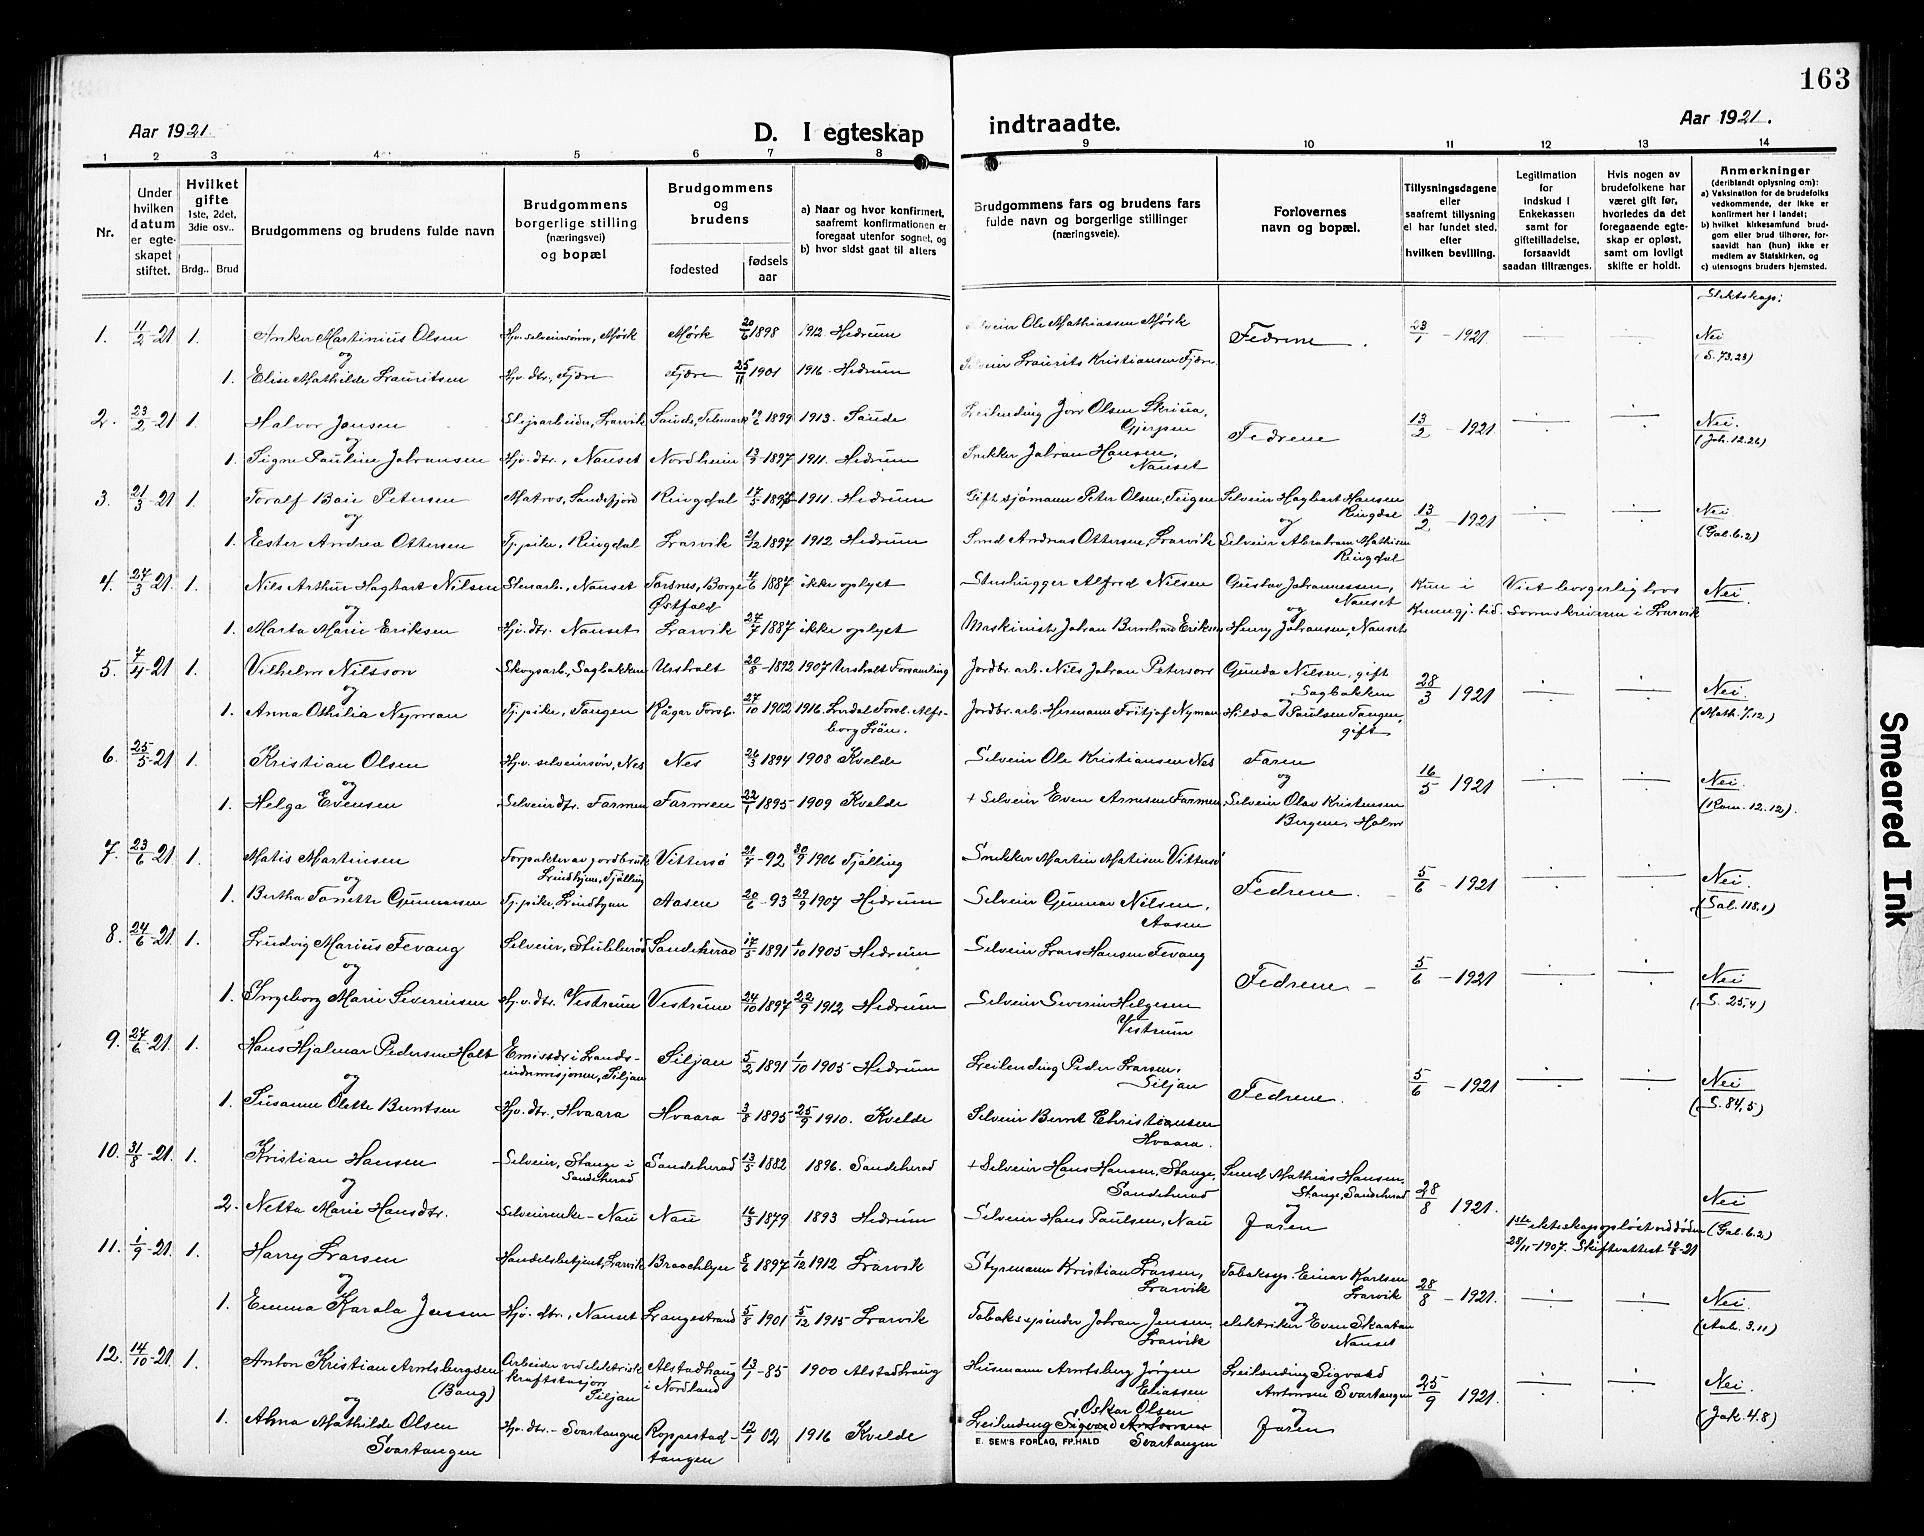 163
Aar 1921.
D. I egteskap indtraadte.
Aar 1921.
1 2 3 4 5 6 7 8 9 10 11 12 13 14
Nr.
Under hvilken datum er egteskapet stiftet.
Hvilket gifte 1ste, 2det, 3die osv..
Brdg.. Brud
Brudgommens og brudens fulde navn
Brudgommens borgerlige stilling (næringsvei) og bopæl
Brudgommens og brudens
fødested
fødsels aar
a) Naar og hvor konfirmert, saafremt konfirmationen er foregaat utenfor sognet, og
b) hvor sidst gaat til alters
Brudgommens fars og brudens fars fulde navn og borgerlige stillinger (næringsveie).
Forlovernes navn og bopæl.
Tillysningsdagene eller saafremt tillysning ei har fundet sted, efter hvilken bevilling.
Legitimation for indskud i Enkekassen samt for giftetilladelse, forsaavidt saadan tiltrænges.
Hvis nogen av brudefolkene har været gift før, hvorledes da det foregaaende egteskap er opløst, samt om lovligt skifte er holdt.
Anmerkninger
(deriblandt oplysning om):
a) Vaksination for de brudefolks vedkommende, der ikke er konfirmert her i landet;
b) hvilket kirkesamfund brudgom eller brud tilhører, forsaavidt han (hun) ikke er medlem av Statskirken, og
c) utensogns bruders hjemsted.
Slektskap:
1. 11/2-21 1. Anker Martinius Olsen Hjv. selveiersønn, Mørk Mørk 20/6 1898 1912 Hedrum Selveier Ole Mathiassen Mørk Fedrene. 23/1 - 1921 Nei (S. 73.23)
og
1. Elise Mathilde Lauritsen Hjv. dtr., Fjære Fjære 25/11 1901 1916 Hedrum Selveier Laurits Kristiansen Fjære
2. 23/2-21 1. Halvor Jensen Sliparbeider, Larvik Saude, Telemark 19/6 1899 1913. Saude Leilending Jens Olsen Skriua, Gjerpen Fedrene 13/2 - 1921 Nei. (Joh. 12.26)
og
1. Signe Pauline Johansen Hjv. dtr., Nanset Nordheim 1897 1911. Hedrum Snekker Johan Hansen, Nanset
3. 21/3-21 1. Toralf Baie Petersen Matros, Sandefjord Ringdal 17/5 1911. Hedrum Gift sjømann Peter Olsen, Feigen Selveier Hagbart Hansen Ringdal 13/2 - 1921 Nei. (Gal. 6.2)
og
1. Ester Andrea Ottersen Tj.pike, Ringdal Larvik 2/12 1897 1912 Hedrum Smed Andreas Ottersen, Larvik Selveier Abraham Mathisen Ringdal
4. 27/3-21 1. Nils Arthur Hagbart Nilsen Stenarb., Nanset Torsnes, Borge Østfold 4/6 1887 ikke oplyst Stenhugger Alfred Nilsen Gustav Johannessen, Nanset Kun i Kunngj. tid. Viet borgerlig hos Sorenskriveren i Larvik Nei.
og
1. Marta Marie Eriksen Hjv. dtr. Nanset Larvik 27/7 1887 ikke oplyst Maskinist Johan Bernhard Eriksen Henry Johansen, Nanset
5. 7/4-21 1. Vilhelm Nilsson Skogsarb., Sagbakken Urshult 20/8-1892 1907 Urshult Forsamling Jordbr. arb. Nils Johan Peterson Gunda Nilsen, gift Sagbakken 28/3 1921 Nei. (Math. 7.12)
og
1. Anna Othilia Nyman Tj.pike, Tangen Rågar Forsb. 27/10 1902 1916. Alfsborg Län. Jordbr. arb. Hermann Fritjof Nyman Hilda Paulsen Tangen, gift
6. 25/5-21 1. Kristian Olsen Hjv. selveiersønn, Nes Nes 26/3 1894 1908 Kvelde Selveier Ole Kristiansen Nes Faren 16/5 1921 Nei (Rom. 12.12).
og
1. Helga Evensen Selveierdtr. Farmen Farmen 22/1 1895 1909 Kvelde + Selveier Even Arnesen Farmen Selveier Olav Kristensen Bergene, Holm
7. 23/6-21 1. Matis Martinsen Forpakter av jordbruk Lindhjem, Tjølling Vittersø 21/7-92 30/9 1906 Tjølling Snekker Martin Matisen Vittersø Fedrene. 5/6 - 1921 Nei. (Sal. 118.1)
og
1. Bertha Tonette Gunnarsen Tj.pike, Lindhjem Aasen 20/6-93 29/9 1907 Hedrum Selveier Gunnar Nilsen, Aasen
8. 24/6-21 1. Ludvig Marius Fevang Selveier, Stubberød Sandeherad 17/5 1891 1/10 1905 Hedrum Selveier Lars Hansen Fevang Fedrene 5/6 - 1921 Nei (S. 25,4)
og
1. Ingeborg Marie Severinsen Hjv. dtr. Vestrum Vestrum 24/10 1897 22/9 1912 Hedrum Selveier Severin Helgesen Vestrum
9. 27/6-21. 1. Hans Hjalmar Pedersen Holt Emissær i Landsindremisjonen, Siljan Siljan 5/2 1891 1/10 1905 Hedrum Leilending Peder Larsen, Siljan Fedrene. 5/6 - 1921 Nei (S. 84,5)
og
1. Susanne Olette Berntsen Hjv. dtr., Hvaara Hvaara 3/8 1895 25/9 1910. Kvelde Selveier Bernt Christiansen Hvaara.
10. 31/8-21. 1. Kristian Hansen Selveier, Stange i Sandeherad Sandeherad 13/5 1882 1896. Sandeherad + Selveier Hans Hansen, Stange, Sandeherad Smed Mathias Hansen, Stange, Sandeherad 28/8 1921. Nei (Gal. 6.2)
og
2. Netta Marie Hansdtr. Selveierenke - Nau Nau 16/3 1879 1893 Hedrum Selveier Hans Paulsen, Nau Faren 1ste ekteskap opløst ved døden 28/11-1907. Skifteattest
11. 1/9-21. 1. Harry Larsen Handelsbetjent, Larvik 8/6 1897 1/12 1912 Larvik Styrmann Kristian Larsen, Larvik Tobakssp. Einar Karlsen Larvik 28/8 - 1921. Nei. (Aab. 3.11)
og
1. Emma Karola Jensen Hjv. dtr., Nanset Langestrand 5/8 1901 5/12 1915 Larvik Tobakspinder Johan Jensen, Larvik elektriker Even Skaatan Nanset
12. 14/10-21 1. Anton Kristian Arntsbergsen (Bang) Arbeider ved elektrisk kraftstasjon Siljan Alstadhaug i Nordland 13/1-85 1900 Alstadhaug Husmann Arntsberg Jørgen Eliassen Leilending Sigvald Antonsen Svartangen 25/9 1921. Nei. (Jak. 4.8)
og
1. Alma Mathilde Olsen Svartangen Hjv. dtr. - Svartangen Roppestadtangen 12/1 02 1916 Kvelde Oskar Olsen Leilending Sigvard Antonsen Svartangen Faren
E. SEM'S FORLAG, FR.HALD
Smeared Ink